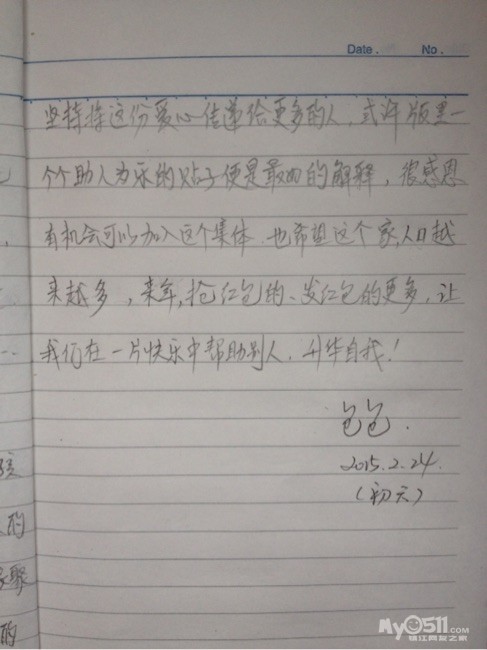 Date. No.
坚持将这份爱心传递给更多的人，或许版里一
个个助人为乐的贴子便是最好的解释，很感恩
有机会可以加入这个集体.也希望这个家,人口越
来越多，来年,抢红包的、发红包的更多,让
我们在一片快乐中帮助别人.升华自我！
包包.
2015.2.24.
(初六)
孩
的
聚
的
My0511.COM
镇江网友之家